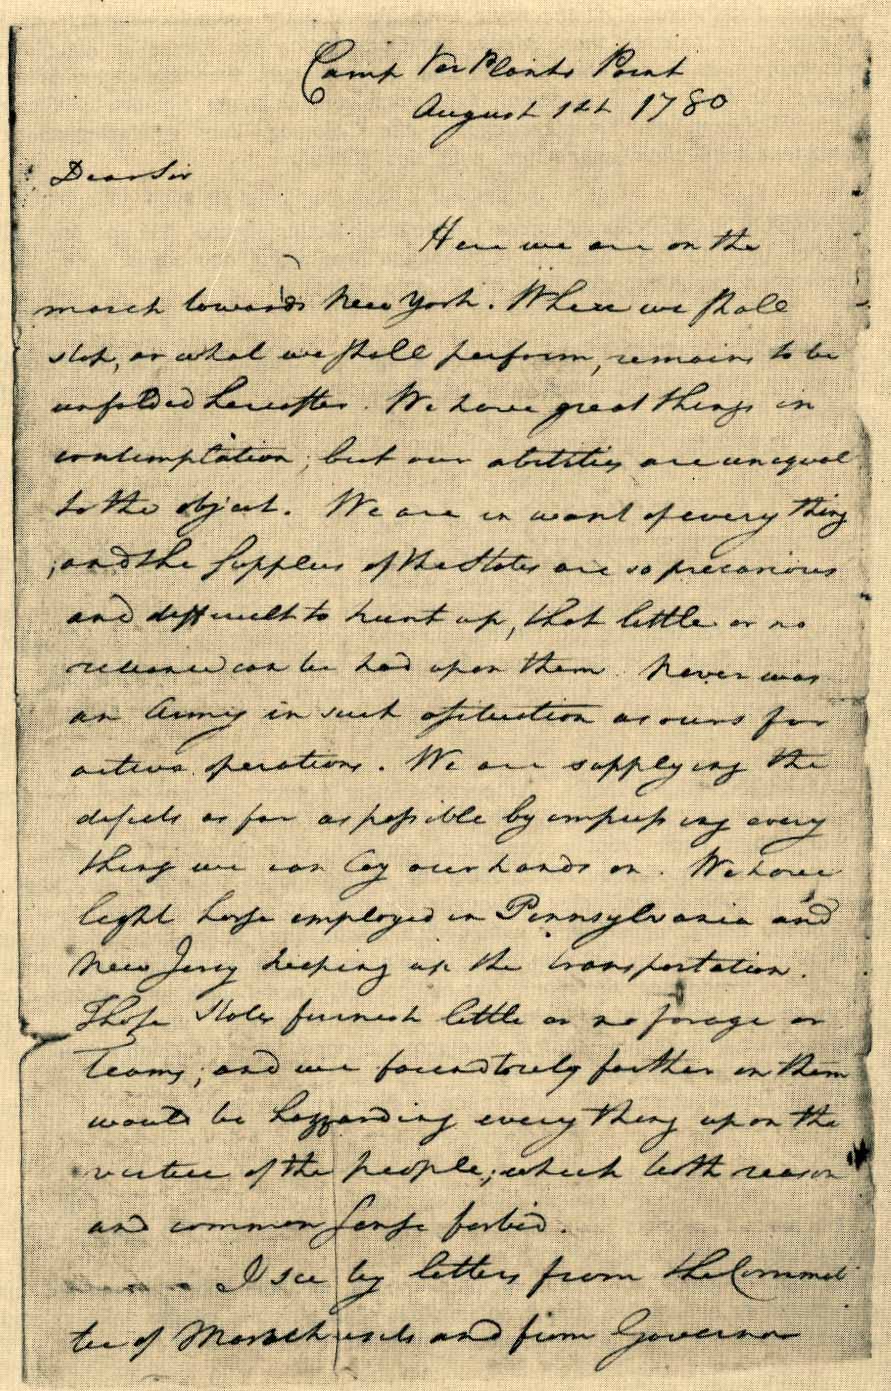 Camp VerPlanks Point
August 1st 1780
Dear Sir
Here we are on the
march towards New York. Where we shall
stop, or what we shall perform, remains to be
unfolded hereafter. We have great things in
contemplation, but our abilities are unequal
to the object. We are in want of every thing
, and the supplies of the States are so precarious
and difficult to hunt up, that little or no
reliance can be had upon them. Never was
an Army in such a situation as ours for
active operations. We are supplying the
defects as far as possible by impressing every
thing we can lay our hands on. We have
light horse employed in Pennsylvania and
New Jersey keeping up the transportation.
Those States furnish little or no forage or
Teams; and we found to rely farther on them
would be hazzarding every thing upon the
virtue of the people; which both reason
and common sense forbid.
I see by letters from the Commit
tee of Massachusets and from Governor